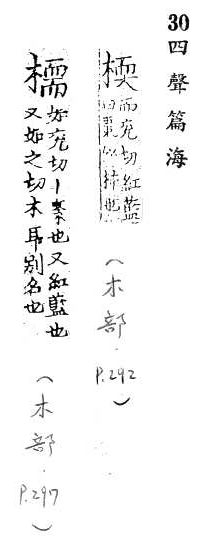 30 四聲篇海
㮕 而兖切紅藍
似柿也
(木部.
P.292)
檽 如兖切丨棗也又紅藍也
又如之切木耳别名也
(木部.
P.297)